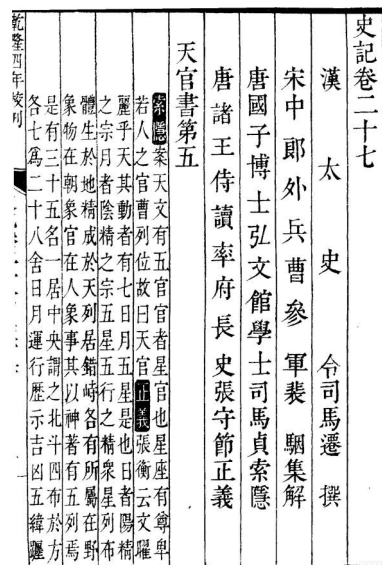 史記卷二十七
漢太史令司馬遷撰
宋中郎外兵曹參軍裴駰集解
唐國子博士弘文館學士司馬貞索隱
唐諸王侍讀率府長史張守節正義
天官書第五
索隱案天文有五官官者星官也星座有尊卑
若人之官曹列位故曰天官正義張衡云文曜
麗乎天其動者有七日月五星是也日者陽精
之宗月者陰精之宗五星五行之精衆星列布
體生於地精成於天列居錯峙各有所屬在野
象物在朝象官在人象事其以神著有五列焉
是有三十五名一居中央謂之北斗四布於方
各七爲二十八舍日月運行歷示吉凶五緯躔
乾隆四年校刊